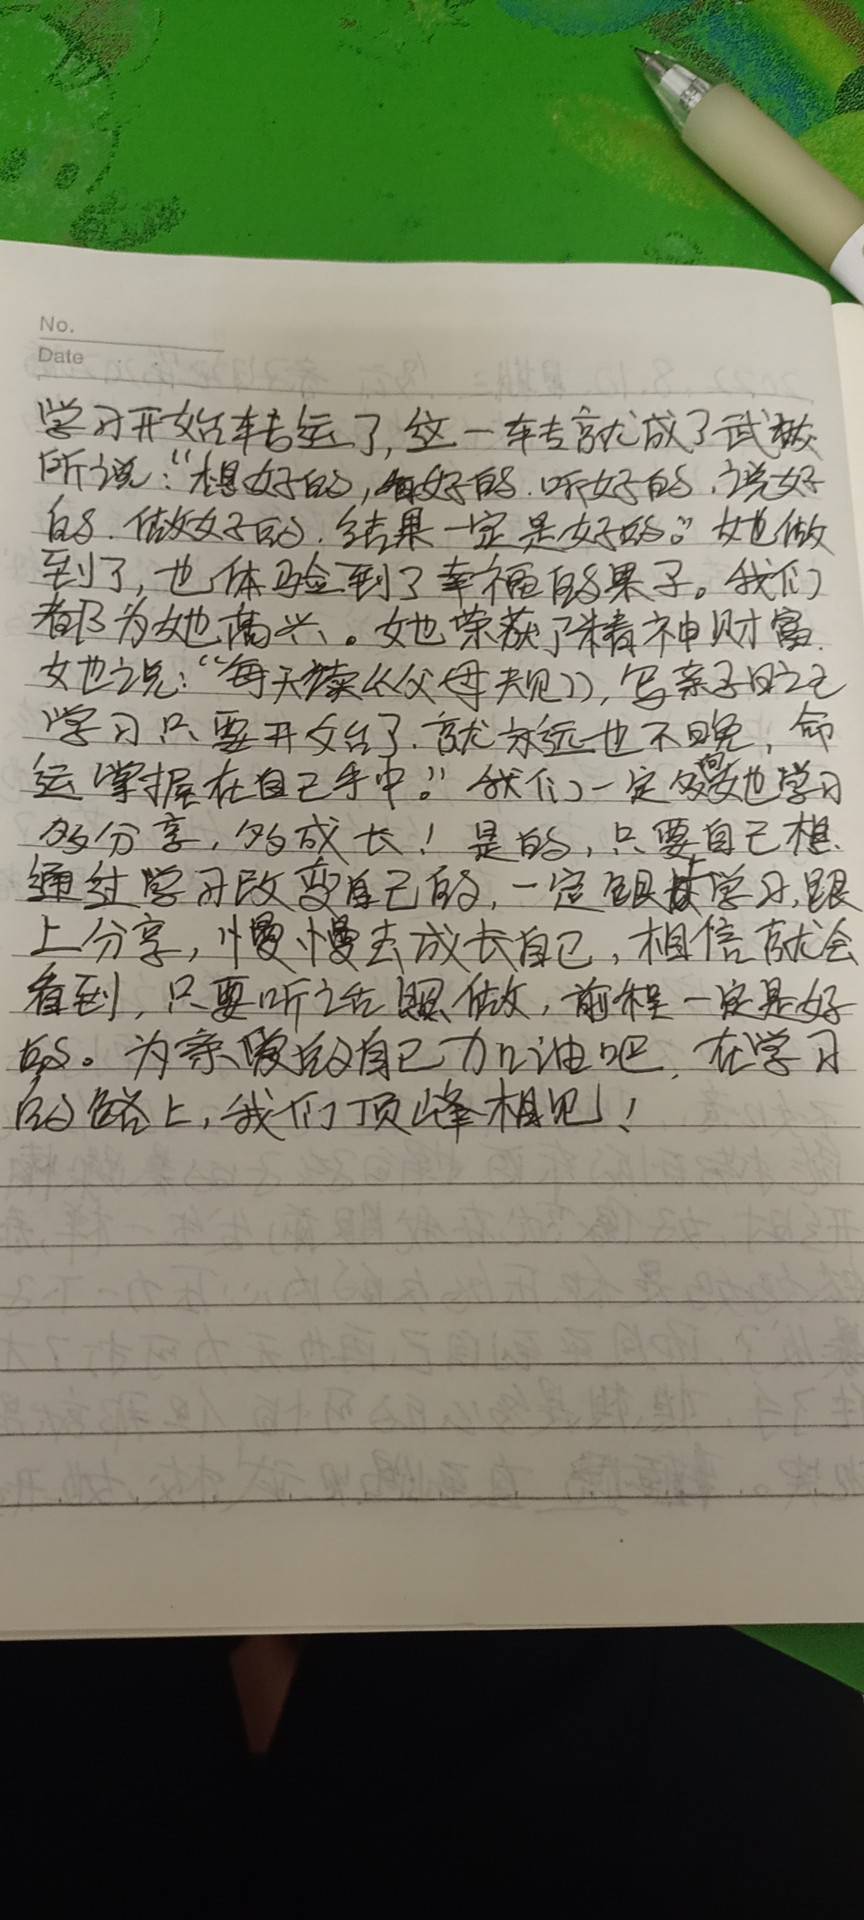 No.
Date
学习开始转运了,这一转就成了武校
所说:“想好的,看好的.听好的.说好
的.做好的.结果一定是好的。”她做
到了,也体验到了幸福的果子。我们
都为她高兴。她荣获了精神财富.
她说:“每天读《父母规》,写亲子日记
学习只要开始了.就永远也不晚,命
运掌握在自己手中。”我们一定多向她学习
多分享,多成长!是的,只要自己想
通过学习改变自己的,一定跟上学习,跟
上分享,慢慢去成长自己,相信就会
看到,只要听话照做,前程一定是好
的。为亲爱的自己加油吧,在学习
的路上,我们顶峰相见!